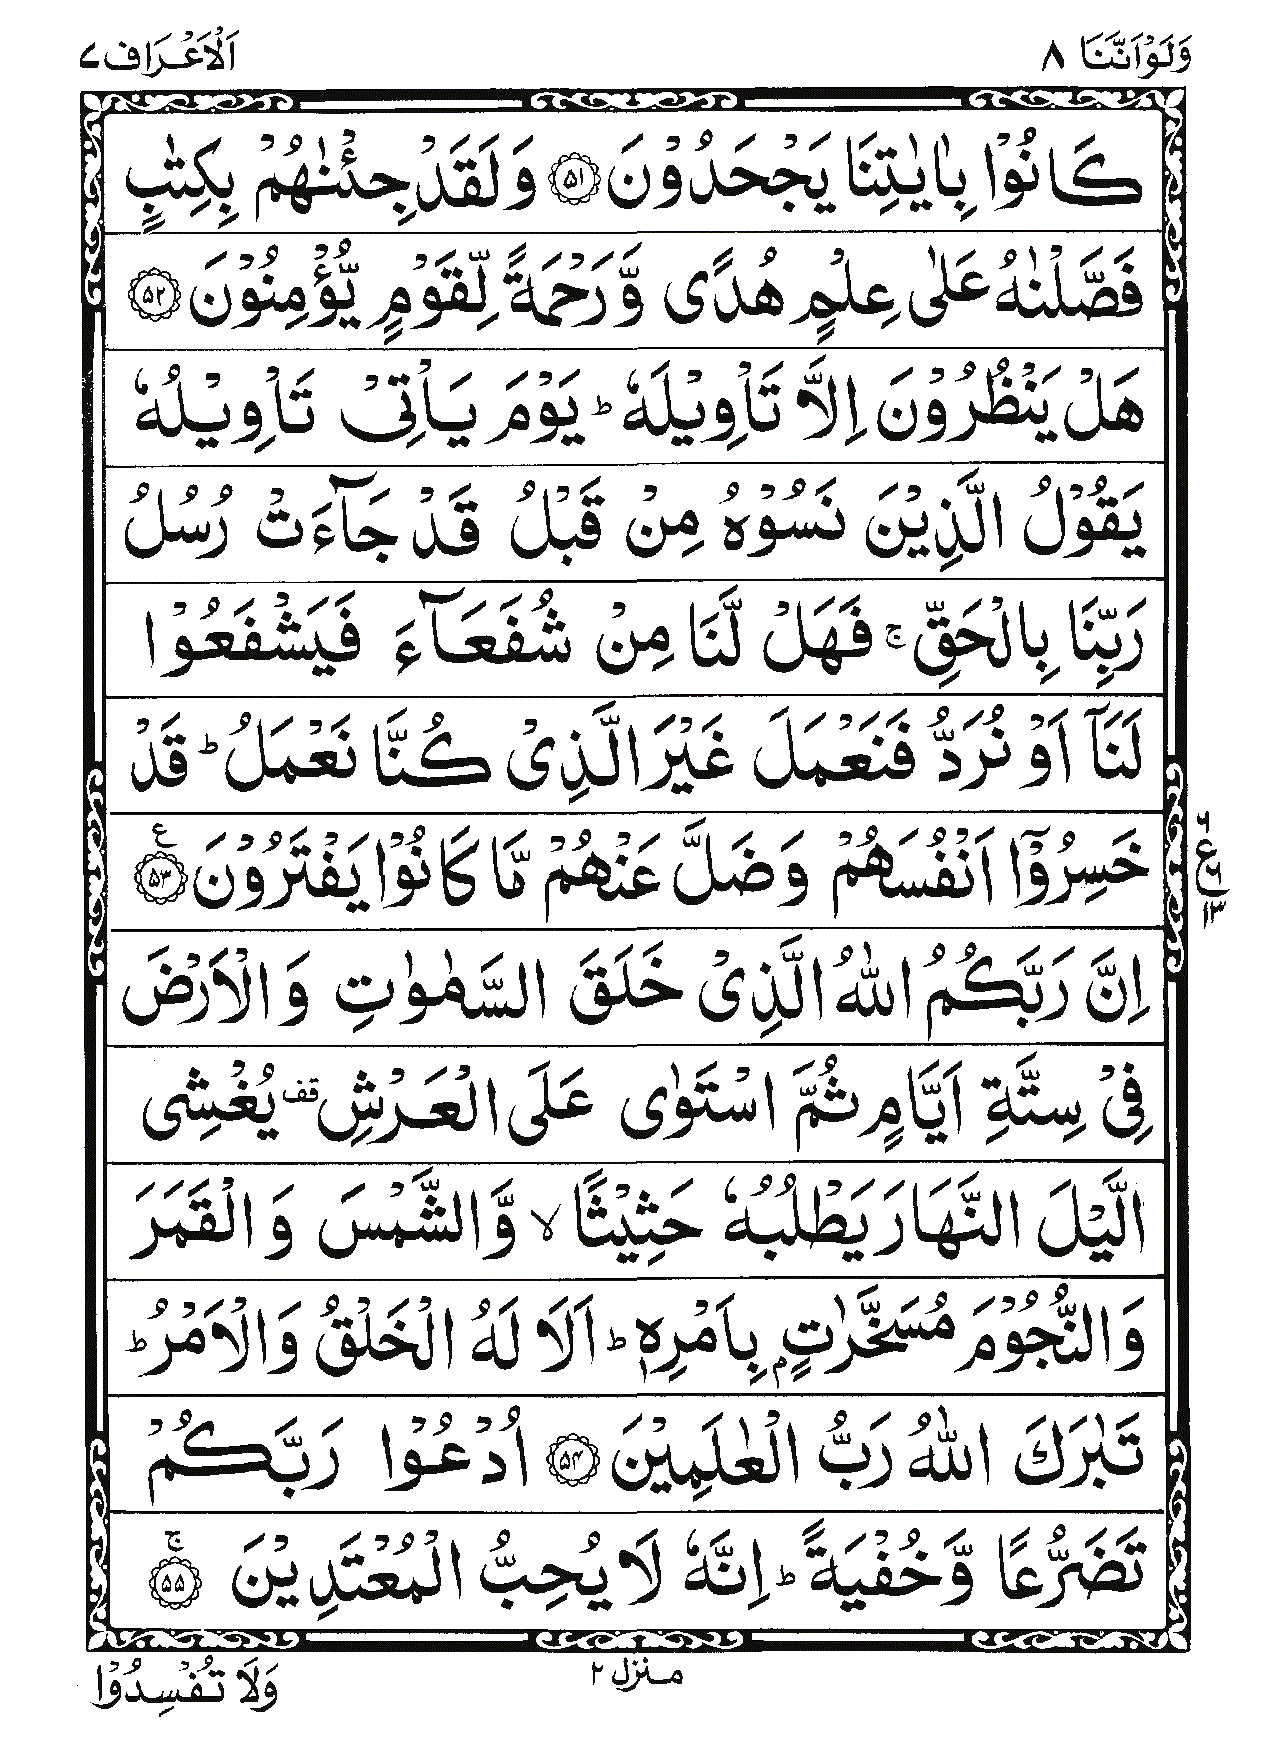 وَلَوْ اَنَّنَا ۸
اَلْاَعْرَاف ۷
كَانُوْا بِاٰيٰتِنَا يَجْحَدُوْنَ ۵۱ وَلَقَدْ جِئْنٰهُمْ بِكِتٰبٍ
فَصَّلْنٰهُ عَلٰى عِلْمٍ هُدًى وَّرَحْمَةً لِّقَوْمٍ يُّؤْمِنُوْنَ ۵۲
هَلْ يَنْظُرُوْنَ اِلَّا تَاْوِيْلَهٗ ؕ يَوْمَ يَاْتِيْ تَاْوِيْلُهٗ
يَقُوْلُ الَّذِيْنَ نَسُوْهُ مِنْ قَبْلُ قَدْ جَآءَتْ رُسُلُ
رَبِّنَا بِالْحَقِّ ۚ فَهَلْ لَّنَا مِنْ شُفَعَآءَ فَيَشْفَعُوْا
لَنَآ اَوْ نُرَدُّ فَنَعْمَلَ غَيْرَ الَّذِيْ كُنَّا نَعْمَلُ ؕ قَدْ
خَسِرُوْٓا اَنْفُسَهُمْ وَضَلَّ عَنْهُمْ مَّا كَانُوْا يَفْتَرُوْنَ ۵۳ ع
اِنَّ رَبَّكُمُ اللّٰهُ الَّذِيْ خَلَقَ السَّمٰوٰتِ وَالْاَرْضَ
فِيْ سِتَّةِ اَيَّامٍ ثُمَّ اسْتَوٰى عَلَى الْعَرْشِ قف يُغْشِى
الَّيْلَ النَّهَارَ يَطْلُبُهٗ حَثِيْثًا ۙ وَّالشَّمْسَ وَالْقَمَرَ
وَالنُّجُوْمَ مُسَخَّرٰتٍۭ بِاَمْرِهٖ ؕ اَلَا لَهُ الْخَلْقُ وَالْاَمْرُ ؕ
تَبٰرَكَ اللّٰهُ رَبُّ الْعٰلَمِيْنَ ۵۴ اُدْعُوْا رَبَّكُمْ
تَضَرُّعًا وَّخُفْيَةً ؕ اِنَّهٗ لَا يُحِبُّ الْمُعْتَدِيْنَ ۵۵ ۚ
۶ ع ۶ ۱۳
منزل ۲
وَلَا تُفْسِدُوْا